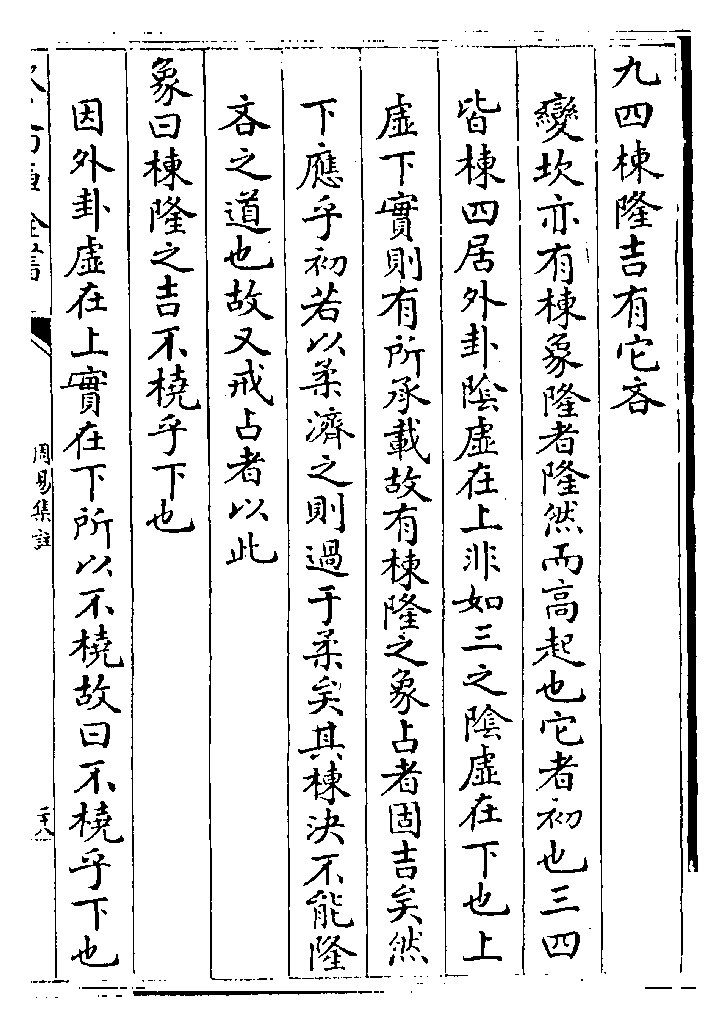 九四棟隆吉有它吝
變坎亦有棟象隆者隆然而高起也它者初也三四
皆棟四居外卦陰虛在上非如三之陰虛在下也上
虛下實則有所承載故有棟隆之象占者固吉矣然
下應乎初若以柔濟之則過于柔矣其棟決不能隆
吝之道也故又戒占者以此
象曰棟隆之吉不橈乎下也
因外卦虛在上實在下所以不橈故曰不橈乎下也
周易集註
二十八